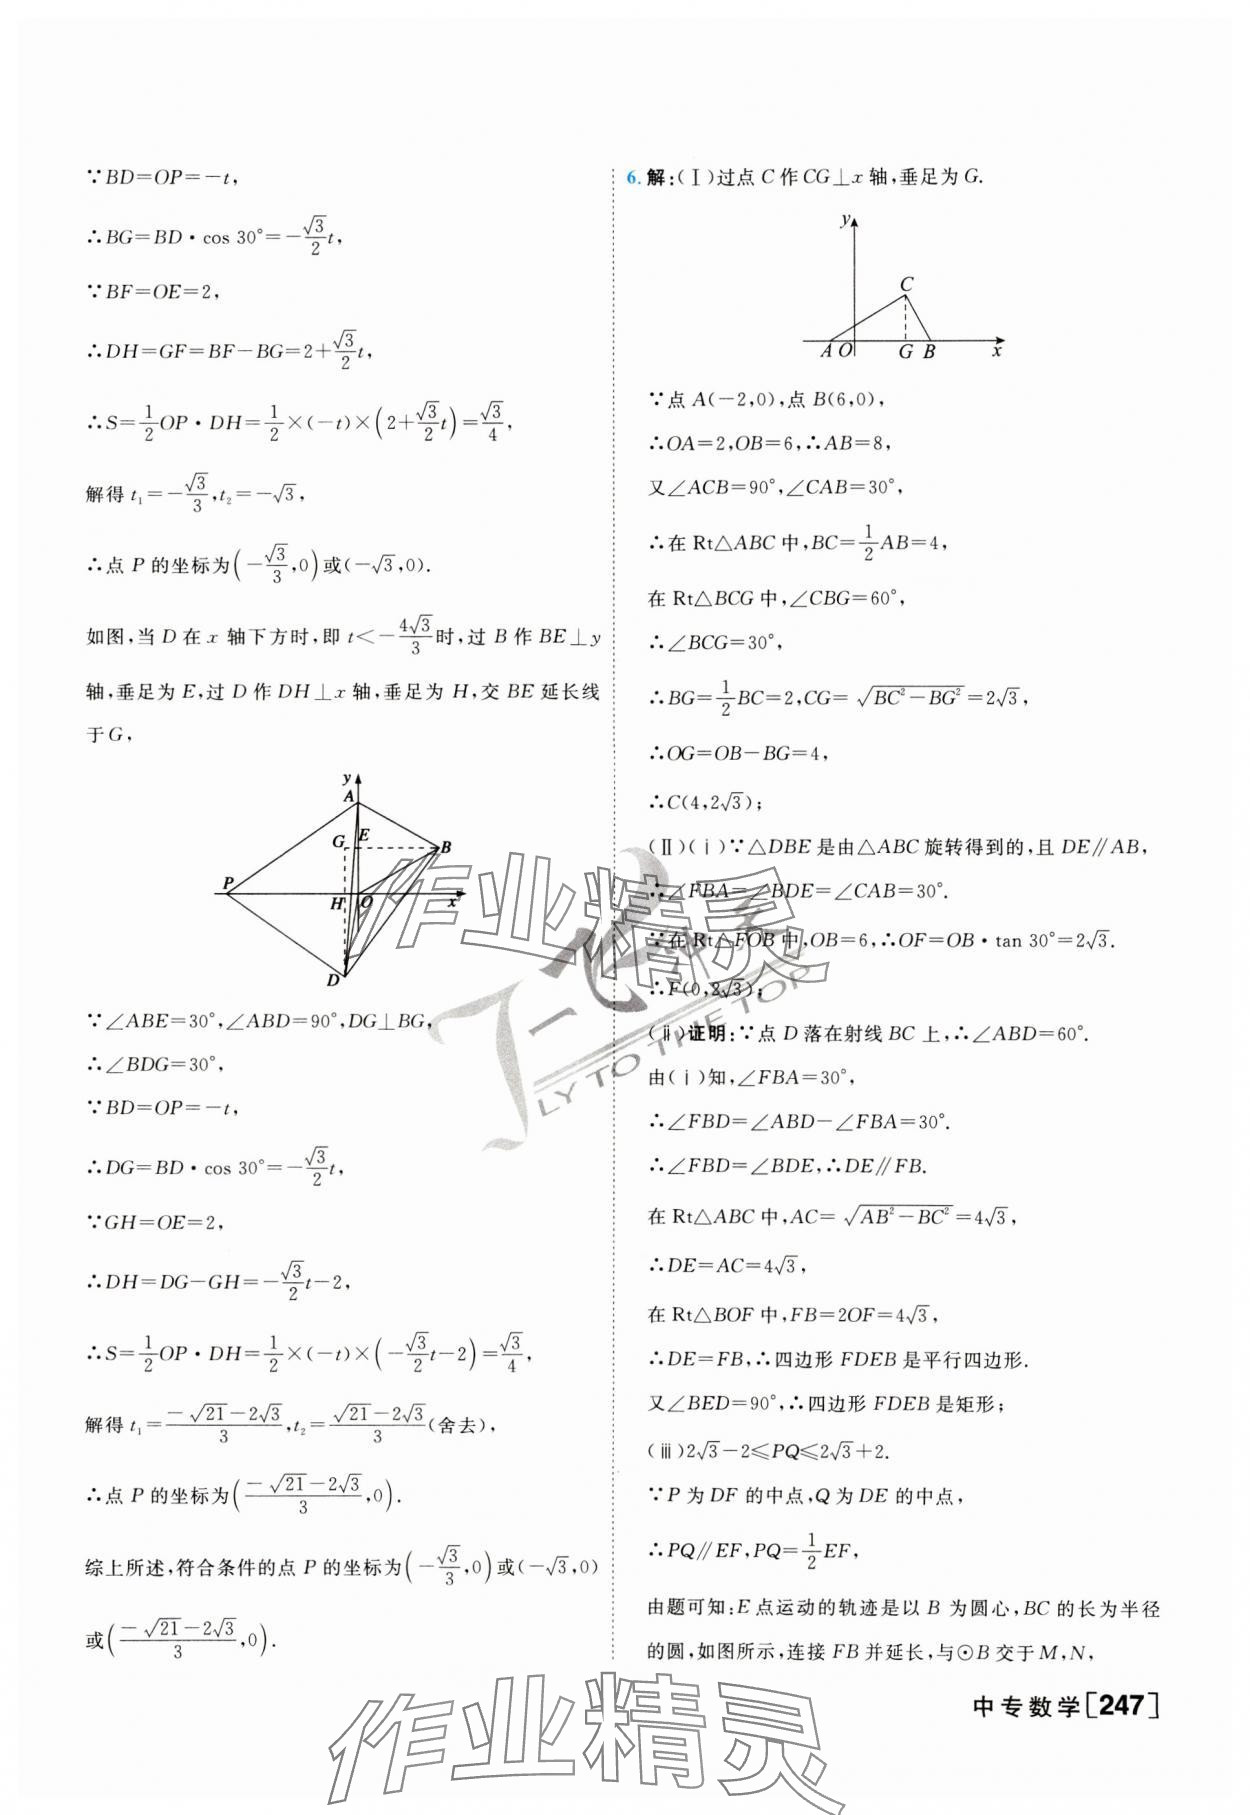 ∵BD=OP=−t,
∴BG=BD·cos 30°=−√3/2 t,
∵BF=OE=2,
∴DH=GF=BF−BG=2+√3/2 t,
∴S=1/2 OP·DH=1/2×(−t)×(2+√3/2 t)=√3/4,
解得 t₁=−√3/3,t₂=−√3,
∴点 P 的坐标为(−√3/3,0)或(−√3,0).
如图,当 D 在 x 轴下方时,即 t<−4√3/3时,过 B 作 BE⊥y
轴,垂足为 E,过 D 作 DH⊥x 轴,垂足为 H,交 BE 延长线
于 G,
y
A
G E B
P H O x
D
∵∠ABE=30°,∠ABD=90°,DG⊥BG,
∴∠BDG=30°,
∵BD=OP=−t,
∴DG=BD·cos 30°=−√3/2 t,
∵GH=OE=2,
∴DH=DG−GH=−√3/2 t−2,
∴S=1/2 OP·DH=1/2×(−t)×(−√3/2 t−2)=√3/4,
解得 t₁=(−√21−2√3)/3,t₂=(√21−2√3)/3(舍去),
∴点 P 的坐标为((−√21−2√3)/3,0).
综上所述,符合条件的点 P 的坐标为(−√3/3,0)或(−√3,0)
或((−√21−2√3)/3,0).
6. 解:(Ⅰ)过点 C 作 CG⊥x 轴,垂足为 G.
y
C
A O G B x
∵点 A(−2,0),点 B(6,0),
∴OA=2,OB=6,∴AB=8,
又∠ACB=90°,∠CAB=30°,
∴在 Rt△ABC 中,BC=1/2 AB=4,
在 Rt△BCG 中,∠CBG=60°,
∴∠BCG=30°,
∴BG=1/2 BC=2,CG=√(BC²−BG²)=2√3,
∴OG=OB−BG=4,
∴C(4,2√3);
(Ⅱ)(ⅰ)∵△DBE 是由△ABC 旋转得到的,且 DE∥AB,
∴∠FBA=∠BDE=∠CAB=30°.
∵在 Rt△FOB 中,OB=6,∴OF=OB·tan 30°=2√3.
∴F(0,2√3);
(ⅱ)证明:∵点 D 落在射线 BC 上,∴∠ABD=60°.
由(ⅰ)知,∠FBA=30°,
∴∠FBD=∠ABD−∠FBA=30°.
∴∠FBD=∠BDE,∴DE∥FB.
在 Rt△ABC 中,AC=√(AB²−BC²)=4√3,
∴DE=AC=4√3,
在 Rt△BOF 中,FB=2OF=4√3,
∴DE=FB,∴四边形 FDEB 是平行四边形.
又∠BED=90°,∴四边形 FDEB 是矩形;
(ⅲ)2√3−2≤PQ≤2√3+2.
∵P 为 DF 的中点,Q 为 DE 的中点,
∴PQ∥EF,PQ=1/2 EF,
由题可知:E 点运动的轨迹是以 B 为圆心,BC 的长为半径
的圆,如图所示,连接 FB 并延长,与⊙B 交于 M,N,
中专数学[247]
作业精灵
一飞冲天
FLY TO THE TOP
作业精灵